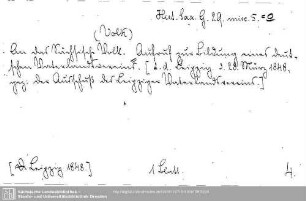 Hist. Sax. G. 29, misc. 5.
(Volk)
An das Sächsische Volk. Aufruf zur Bildung eines deut-
schen Vaterlandsvereins. [d. Leipzig d. 28. März 1848.
gez. der Ausschuß des Leipziger Vaterlandsvereins.]
[Leipzig 1848.] 1 Blatt. 4.
Sächsische Landesbibliothek -
Staats- und Universitätsbibliothek Dresden